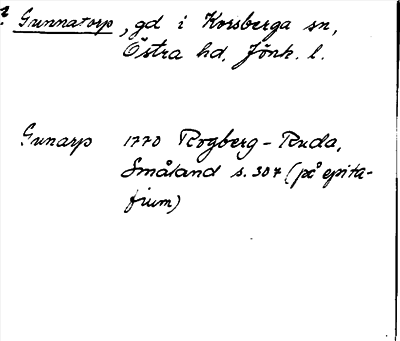 ? Gunnatorp, gd i Korsberga sn,
Östra hd, Jönk. l.
Gunarp 1770 Rogberg-Ruda,
Småland s. 307 (på epita-
fium)